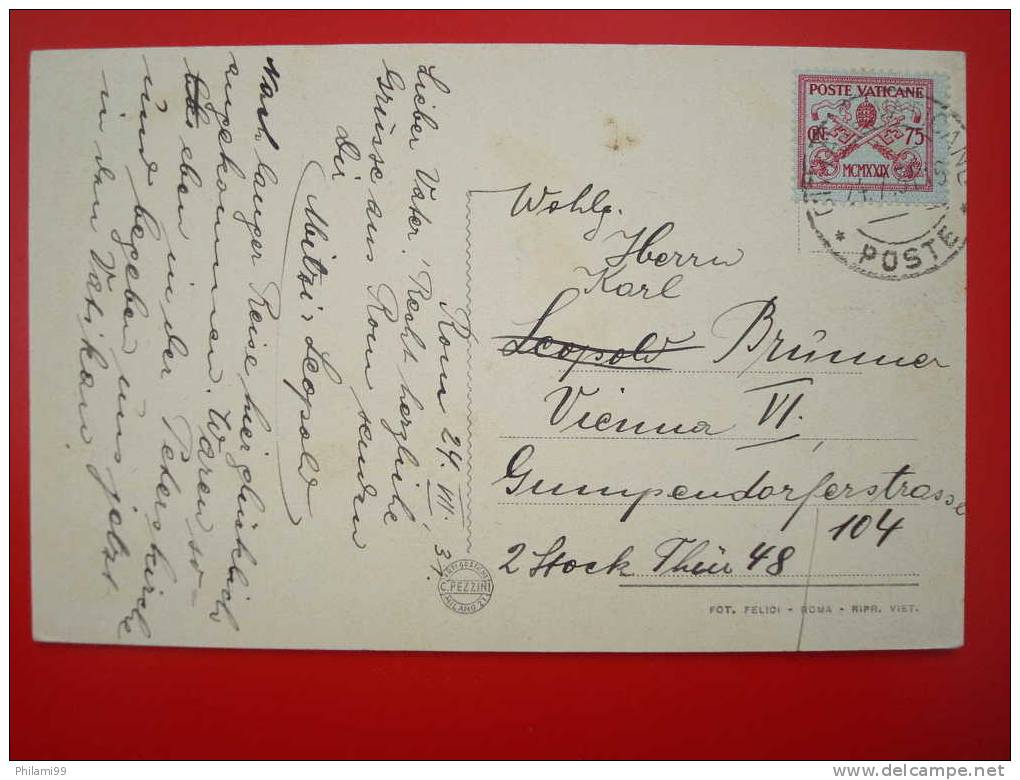 Rom 24. VII. 31.
Lieber Vater! Recht herzliche
Grüsse aus Rom senden
Dir
Mitzi, Leopold
Nach langer Reise hier glücklich
angekommen. Waren so-
eben in der Peterskirche
und begeben uns jetzt
in den Vatikan.
POSTE VATICANE
CEN. 75
MCMXXIX
* POSTE *
Wohlg.
Herrn
Karl
Leopold Brünner
Vienna VI,
Gumpendorferstrasse
104
2 Stock Thür 48
C. PEZZINI
MILANO
FOT. FELICI - ROMA - RIPR. VIET.
Philami99
delcampe.net